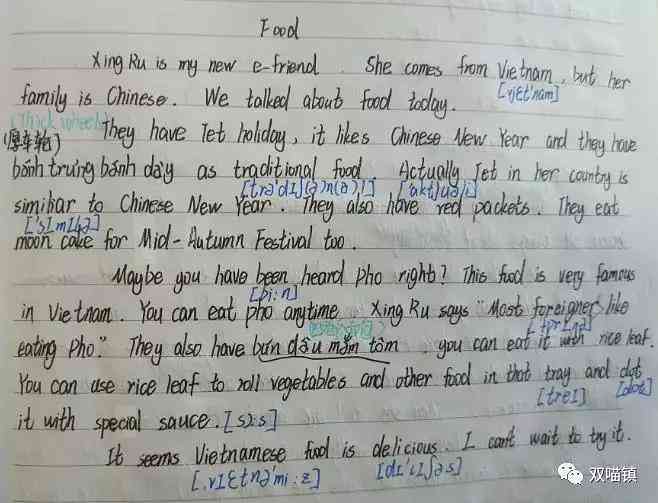 Food
Xing Ru is my new e-friend. She comes from Vietnam, but her
[vjɛt'nam]
family is Chinese. We talked about food today.
(Thick wheels)
They have Tet holiday, it likes Chinese New Year and they have
(厚车轮)
bánh trưng bánh dày as traditional food. Actually Tet in her country is
[trə'dɪʃ(ə)n(ə)l]
similiar to Chinese New Year. They also have red packets. They eat
['sɪmɪlə]
moon cake for Mid-Autumn Festival too.
Maybe you have been heard Pho right? This food is very famous
[bi:n]
in Vietnam. You can eat pho anytime. Xing Ru says "Most foreigner like
eating Pho." They also have bún đậu mắm tôm. you can eat it with rice leaf.
You can use rice leaf to roll vegetables and other food in that tray and dot
[treɪ]
[dɒt]
it with special sauce. [sɔ:s]
It seems Vietnamese food is delicious. I can't wait to try it.
[.vɪɛtnə'mi:z]
[dɪ'lɪʃəs]
双喵镇